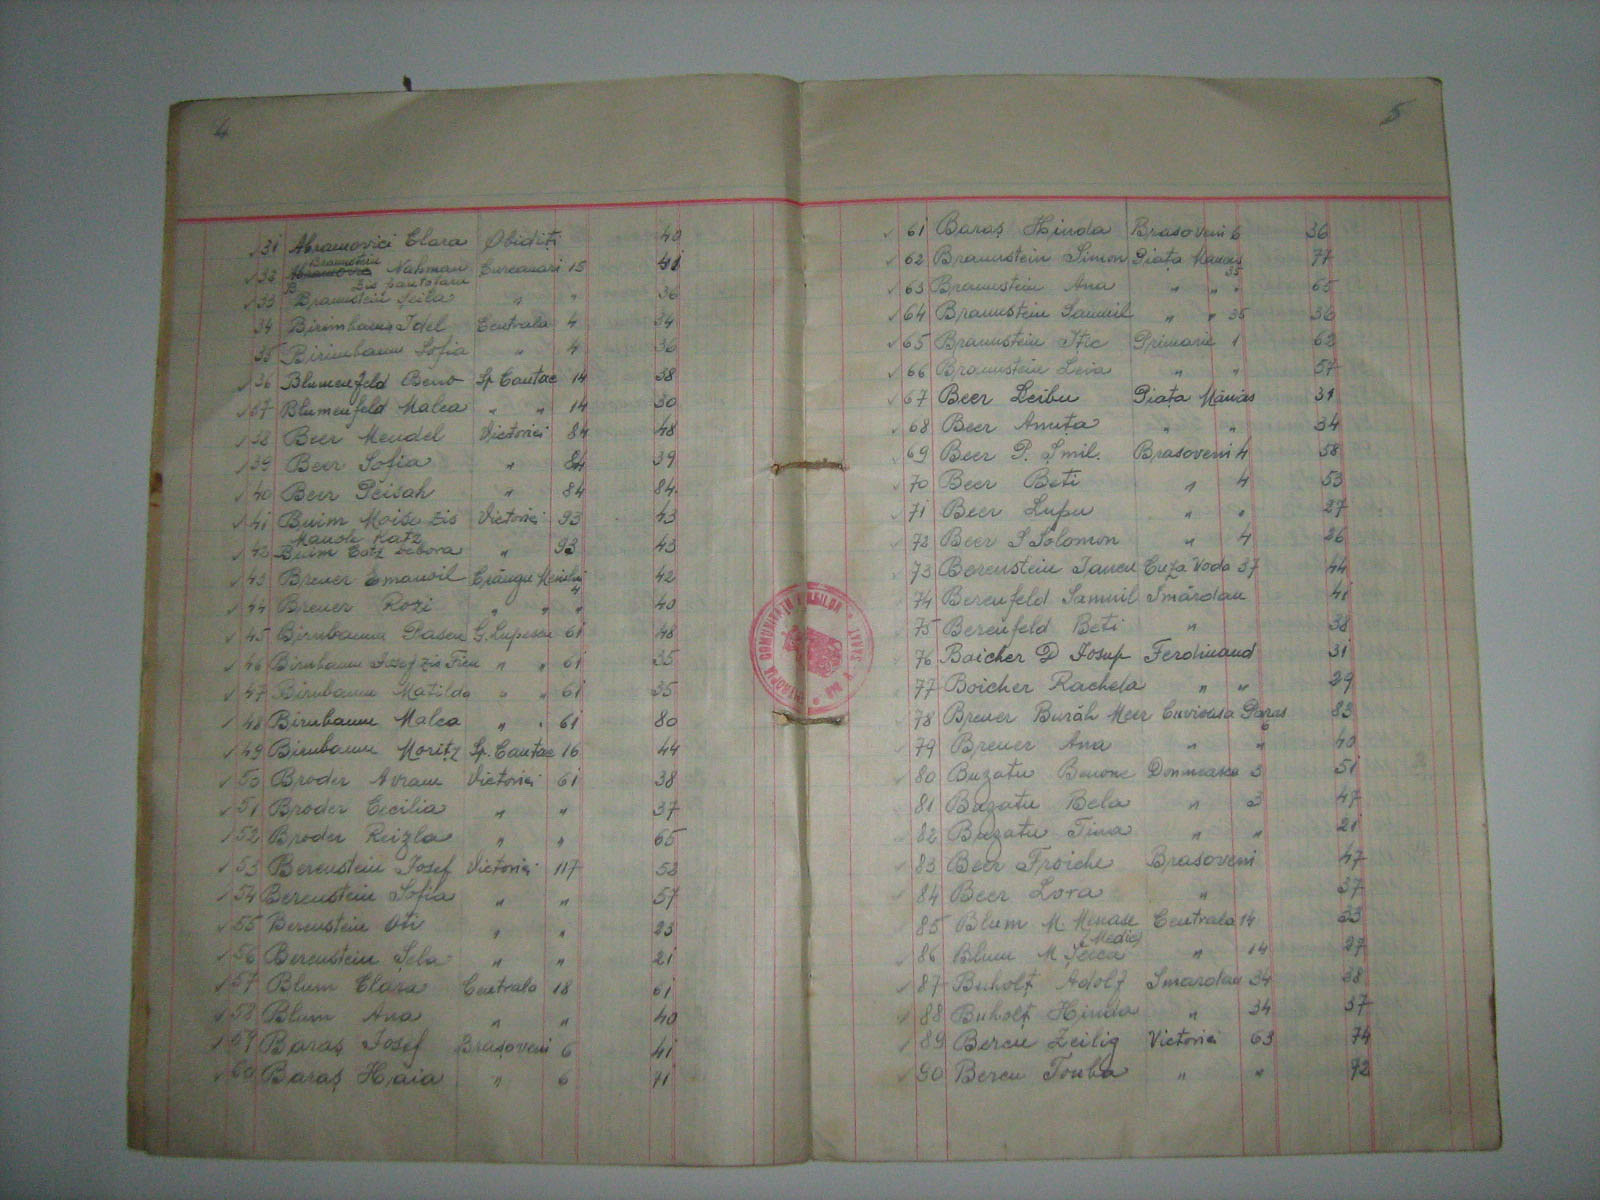 4
31 Abramovici Clara Obiditi 40
Braunstein
32 Nahman Curcanari 15 41
33 Braunstein Șeila " " 36
34 Birimbaum Idel Centrala 4 34
35 Birimbaum Sofia " 4 36
36 Blumenfeld Beno Sp Cantac 14 38
37 Blumenfeld Malca " " 14 30
38 Beer Mendel Victoriei 84 48
39 Beer Sofia " 84 39
40 Beer Peisah " 84 84
41 Buim Moise zis Victoriei 93 43
Manole Katz
42 Buim Catz Debora " 93 43
43 Brener Emanoil Crângu 42
44 Brener Rozi " " " 40
45 Birnbaum Pascu G. Lupescu 61 48
46 Birnbaum Iosef zis Ficu " " 61 35
47 Birnbaum Matilda " " 61 35
48 Birnbaum Malca " " 61 80
49 Birnbaum Moritz Sp. Cantac 16 44
50 Broder Avram Victoriei 61 38
51 Broder Cecilia " " 37
52 Broder Reizla " " 65
53 Berenstein Iosef Victoriei 117 58
54 Berenstein Sofia " " 57
55 Berenstein Oti " " 23
56 Berenstein Șela " " 21
57 Blum Clara Centrala 18 61
58 Blum Ana " " 40
59 Baraș Iosef Brașoveni 6 41
60 Baraș Haia " 6 71
5
61 Baraș Hinda Brasoveni 6 36
62 Braunstein Simon Piața 77
35
63 Braunstein Ana " " " 65
64 Braunstein Samuil " " 35 36
65 Braunstein Itic Primarie 1 62
66 Braunstein Leia " " 57
67 Beer Leibu Piața 31
68 Beer Anuța " " 34
69 Beer P. Smil. Brasoveni 4 58
70 Beer Beti " 4 53
71 Beer Lupu " " 27
72 Beer S Solomon " 4 26
73 Berenstein Iancu Cuza Voda 37 44
74 Berenfeld Samuil Smârdan 41
75 Berenfeld Beti " 38
76 Boicher D Iosup Ferdinand 31
77 Boicher Rachela " " 29
78 Brener Burăh Meer Cuvioasa Paras 83
6
79 Brener Ana " " 40
80 Buzatu Benone Domneasca 3 51
81 Buzatu Bela " 3 47
82 Buzatu Tina " " 21
83 Beer Froiche Brasoveni 47
84 Beer Lora " 37
85 Blum M. Menase Centrala 14 33
(Medic)
86 Blum M " 14 27
87 Buholț Adolf Smardan 34 38
88 Buholț Hinda " 34 37
89 Bercu Zeilig Victoriei 63 74
90 Bercu Touba " " 72